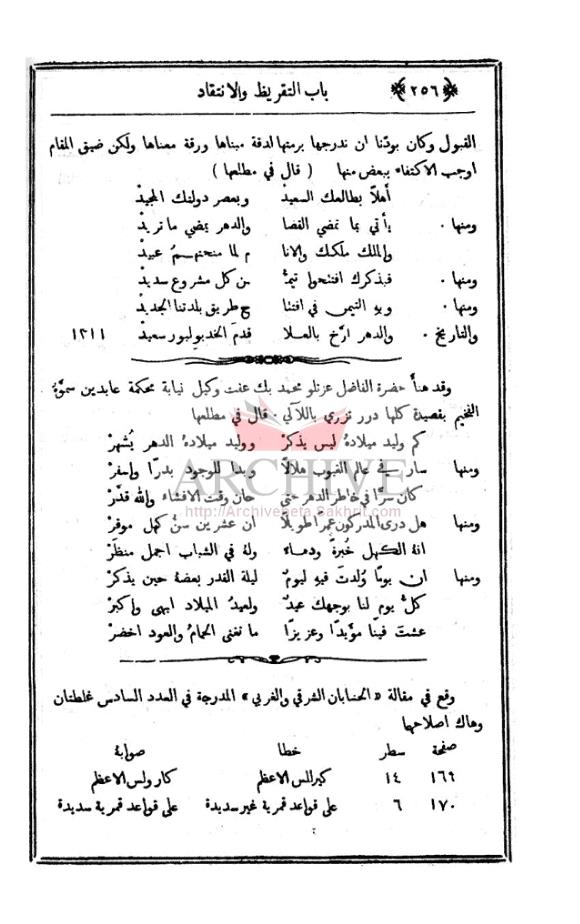 ﴿٢٥٦﴾ باب التقريظ والانتقاد
القبول وكان بودّنا ان ندرجها برمتها لدقة مبناها ورقة معناها ولكن ضيق المقام
اوجب الاكتفاء ببعض منها ( قال في مطلعها )
أهلاً بطالعك السعيدْ وبعصر دولتك المجيدْ
ومنها . يأتي بما تمضي القضا والدهر يمضي ما تريدْ
والملك ملكك والانا م لما منحتهمُ عبيدْ
ومنها . فبذكرك افتتحوا تيمُّ ـن كل مشروع سديدْ
ومنها . وبه التيمن في افتتا ح طريق بلدتنا الجديدْ
والتاريخ . والدهر ارّخ بالعلا قدمَ الخديو لبور سعيدْ ١٣١١
وقد هنأ حضرة الفاضل عزتلو محمد بك عفت وكيل نيابة محكمة عابدين سموّهُ
الفخيم بقصيدة كلها درر تزري باللآلي . قال في مطلعها
كم وليد ميلادهُ ليس يذكرْ ووليد ميلادهُ الدهر يُشهرْ
ومنها سار في عالم الغيوب هلالاً وبدا للوجود بدرًا واسفرْ
كان سرًّا في خاطر الدهر حتى حان وقت الافشاء والله قدَّرْ
ومنها هل درى المدركون عمرًا طويلاً ان عشرين سنُّ كهل موقرْ
انهُ الكهل خُبرةً ودهاء ولهُ في الشباب اجمل منظرْ
ومنها ان يومًا وُلدتَ فيهِ ليومٌ ليلة القدر بعضهُ حين يذكرْ
كلُّ يوم لنا بوجهك عيدٌ ولعيدُ الميلاد ابهى واكبرْ
عشتَ فينا مؤيدًا وعزيزًا ما تغنى الحمامُ والعود اخضرْ
وقع في مقالة « الحسابان الشرقي والغربي » المدرجة في العدد السادس غلطتان
وهاك اصلاحها
صفحة سطر خطا صوابهُ
١٦٩ ١٤ كيرلس الاعظم كارولس الاعظم
١٧٠ ٦ على قواعد قمرية غير سديدة على قواعد قمرية سديدة
ARCHIVE
http://Archivebeta.Sakhrit.com